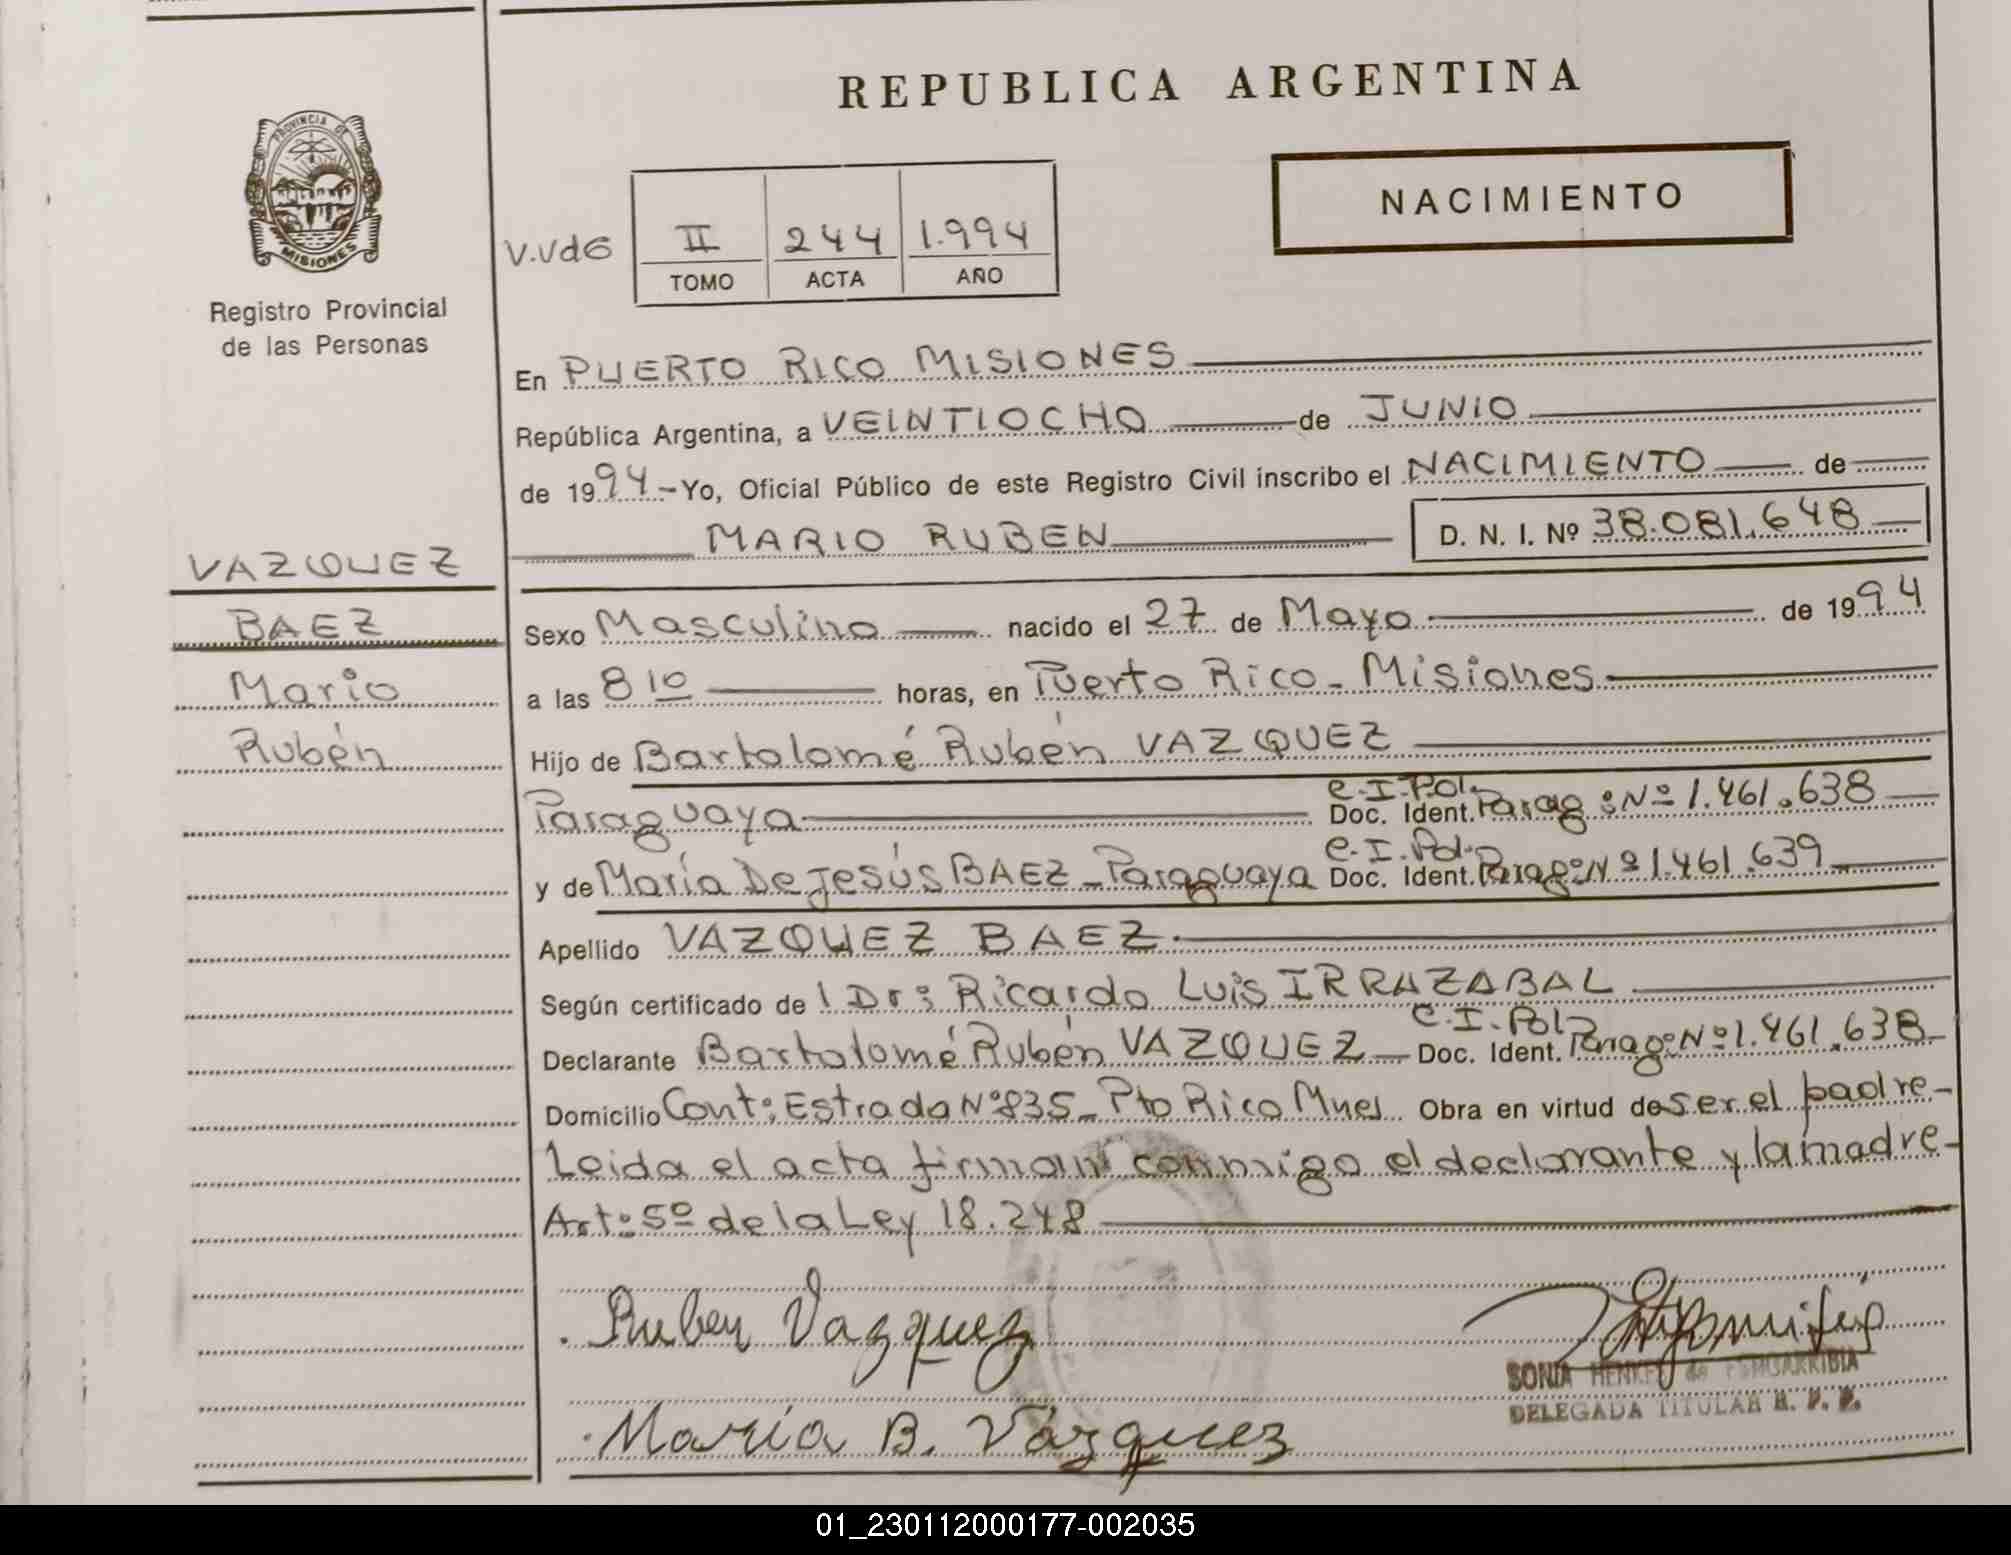 REPUBLICA ARGENTINA
PROVINCIA DE
MISIONES
NACIMIENTO
V.Vd6 II 244 1.994
TOMO ACTA AÑO
Registro Provincial
de las Personas
En PUERTO RICO MISIONES
República Argentina, a VEINTIOCHO de JUNIO
de 1994 - Yo, Oficial Público de este Registro Civil inscribo el NACIMIENTO de
MARIO RUBEN D. N. I. Nº 38.081.648
VAZQUEZ
BAEZ
Mario
Rubén
Sexo Masculino nacido el 27 de Mayo de 1994
a las 8 10 horas, en Puerto Rico - Misiones
Hijo de Bartolomé Rubén VAZQUEZ
Paraguaya C.I.Pol. Doc. Ident. Parag: Nº 1.461.638
y de María De Jesús BAEZ - Paraguaya C.I.Pol. Doc. Ident. Parag: Nº 1.461.639
Apellido VAZQUEZ BAEZ.
Según certificado de Dr: Ricardo Luis IRRAZABAL
Declarante Bartolomé Rubén VAZQUEZ C.I.Pol Doc. Ident. Parag: Nº 1.461.638
Domicilio Cont: Estrada Nº 835 - Pto Rico Mnes Obra en virtud de ser el padre -
Leida el acta firman conmigo el declarante y la madre -
Art: 5º de la Ley 18.248
Ruben Vazquez
SONIA HENKEL de
DELEGADA TITULAR R. P. P.
María B. Vázquez
01_230112000177-002035